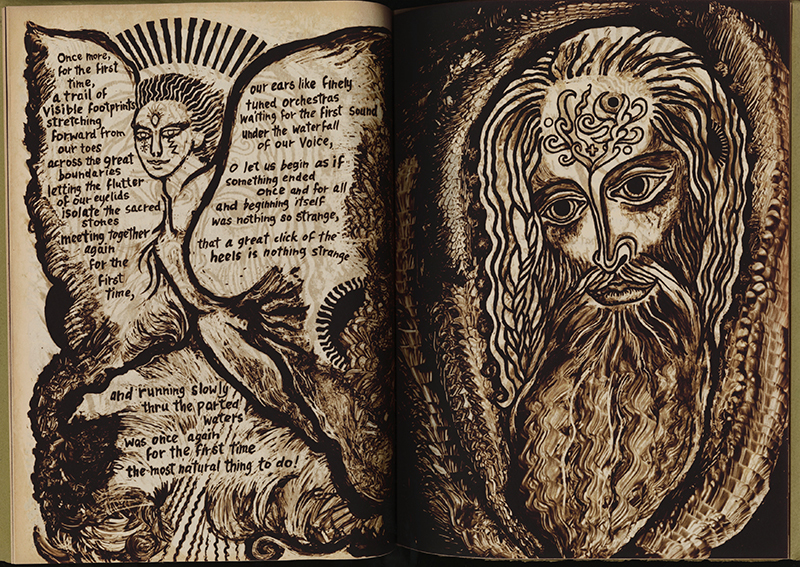 Once more,
for the first
time,
a trail of
visible footprints
stretching
forward from
our toes
across the great
boundaries
letting the flutter
of our eyelids
isolate the sacred
stones
meeting together
again
for the
first
time,
our ears like finely
tuned orchestras
waiting for the first sound
under the waterfall
of our Voice,
O let us begin as if
something ended
once and for all
and beginning itself
was nothing so strange,
that a great click of the
heels is nothing strange
and running slowly
thru the parted
waters
was once again
for the first time
the most natural thing to do!